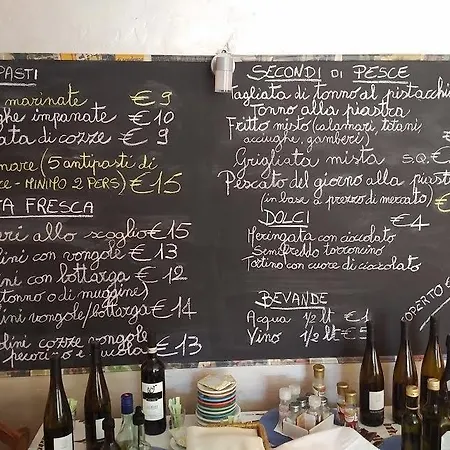 PASTI
marinate € 9
ghe impanate € 10
ata di cozze € 9
mare (5 antipasti di
ce - MINIMO 2 PERS) € 15
TA FRESCA
eri allo scoglio € 15
lini con vongole € 13
ini con bottarga € 12
(tonno o di muggine)
ini vongole/bottarga € 14
olini cozze vongole
pecorino e rucola € 13
SECONDI DI PESCE
Tagliata di tonno al pistacchi
Tonno alla piastra
Fritto misto (calamari, totani
acciughe, gamberi)
Grigliata mista S.Q. €
Pescato del giorno alla piast
(in base a prezzo di mercato) €
DOLCI € 4
Meringata con cioccolato
Semifreddo torroncino
Tortino con cuore di cioccolato
BEVANDE
Acqua 1/2 lt € 1
Vino 1/2 lt € 5
COPERTO €